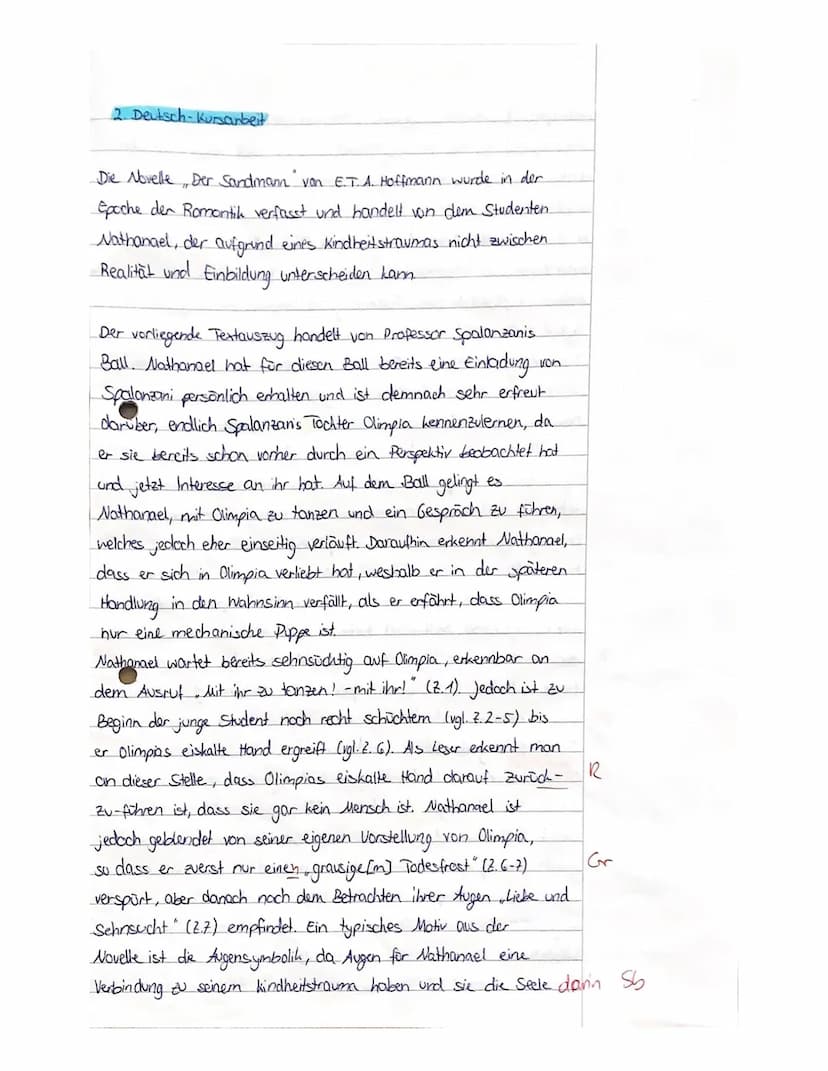 2. Deutsch-Kursarbeit
Die Novelle „Der Sandmann" von E.T.A. Hoffmann wurde in der
Epoche der Romantik verfasst und handelt von dem Studenten
Nathanael, der aufgrund eines Kindheitstraumas nicht zwischen
Realität und Einbildung unterscheiden kann
Der vorliegende Textauszug handelt von Professor Spalanzanis
Ball. Nathanael hat für diesen Ball bereits eine Einladung von
Spalanzani persönlich erhalten und ist demnach sehr erfreut
darüber, endlich Spalanzanis Tochter Olimpia kennenzulernen, da
er sie bereits schon vorher durch ein Perspektiv beobachtet hat
und jetzt Interesse an ihr hat. Auf dem Ball gelingt es
Nathanael, mit Olimpia zu tanzen und ein Gespräch zu führen,
welches jedoch eher einseitig verläuft. Daraufhin erkennt Nathanael,
dass er sich in Olimpia verliebt hat, weshalb er in der späteren
Handlung in den Wahnsinn verfällt, als er erfährt, dass Olimpia
nur eine mechanische Puppe ist.
Nathanael wartet bereits sehnsüchtig auf Olimpia, erkennbar an
dem Ausruf „Mit ihr zu tanzen! - mit ihr!" (Z.1). Jedoch ist zu
Beginn der junge Student noch recht schüchtern (vgl. Z. 2-5) bis
er Olimpias eiskalte Hand ergreift (vgl. Z. 6). Als Leser erkennt man
an dieser Stelle, dass Olimpias eiskalte Hand darauf zurück- R
zu-führen ist, dass sie gar kein Mensch ist. Nathanael ist
jedoch geblendet von seiner eigenen Vorstellung von Olimpia,
so dass er zuerst nur einen „grausige[m] Todesfrost" (Z. 6-7) Gr
verspürt, aber danach nach dem Betrachten ihrer Augen „Liebe und
Sehnsucht" (Z.7) empfindet. Ein typisches Motiv aus der
Novelle ist die Augensymbolik, da Augen für Nathanael eine
Verbindung zu seinem Kindheitstrauma haben und sie die Seele darin Sb